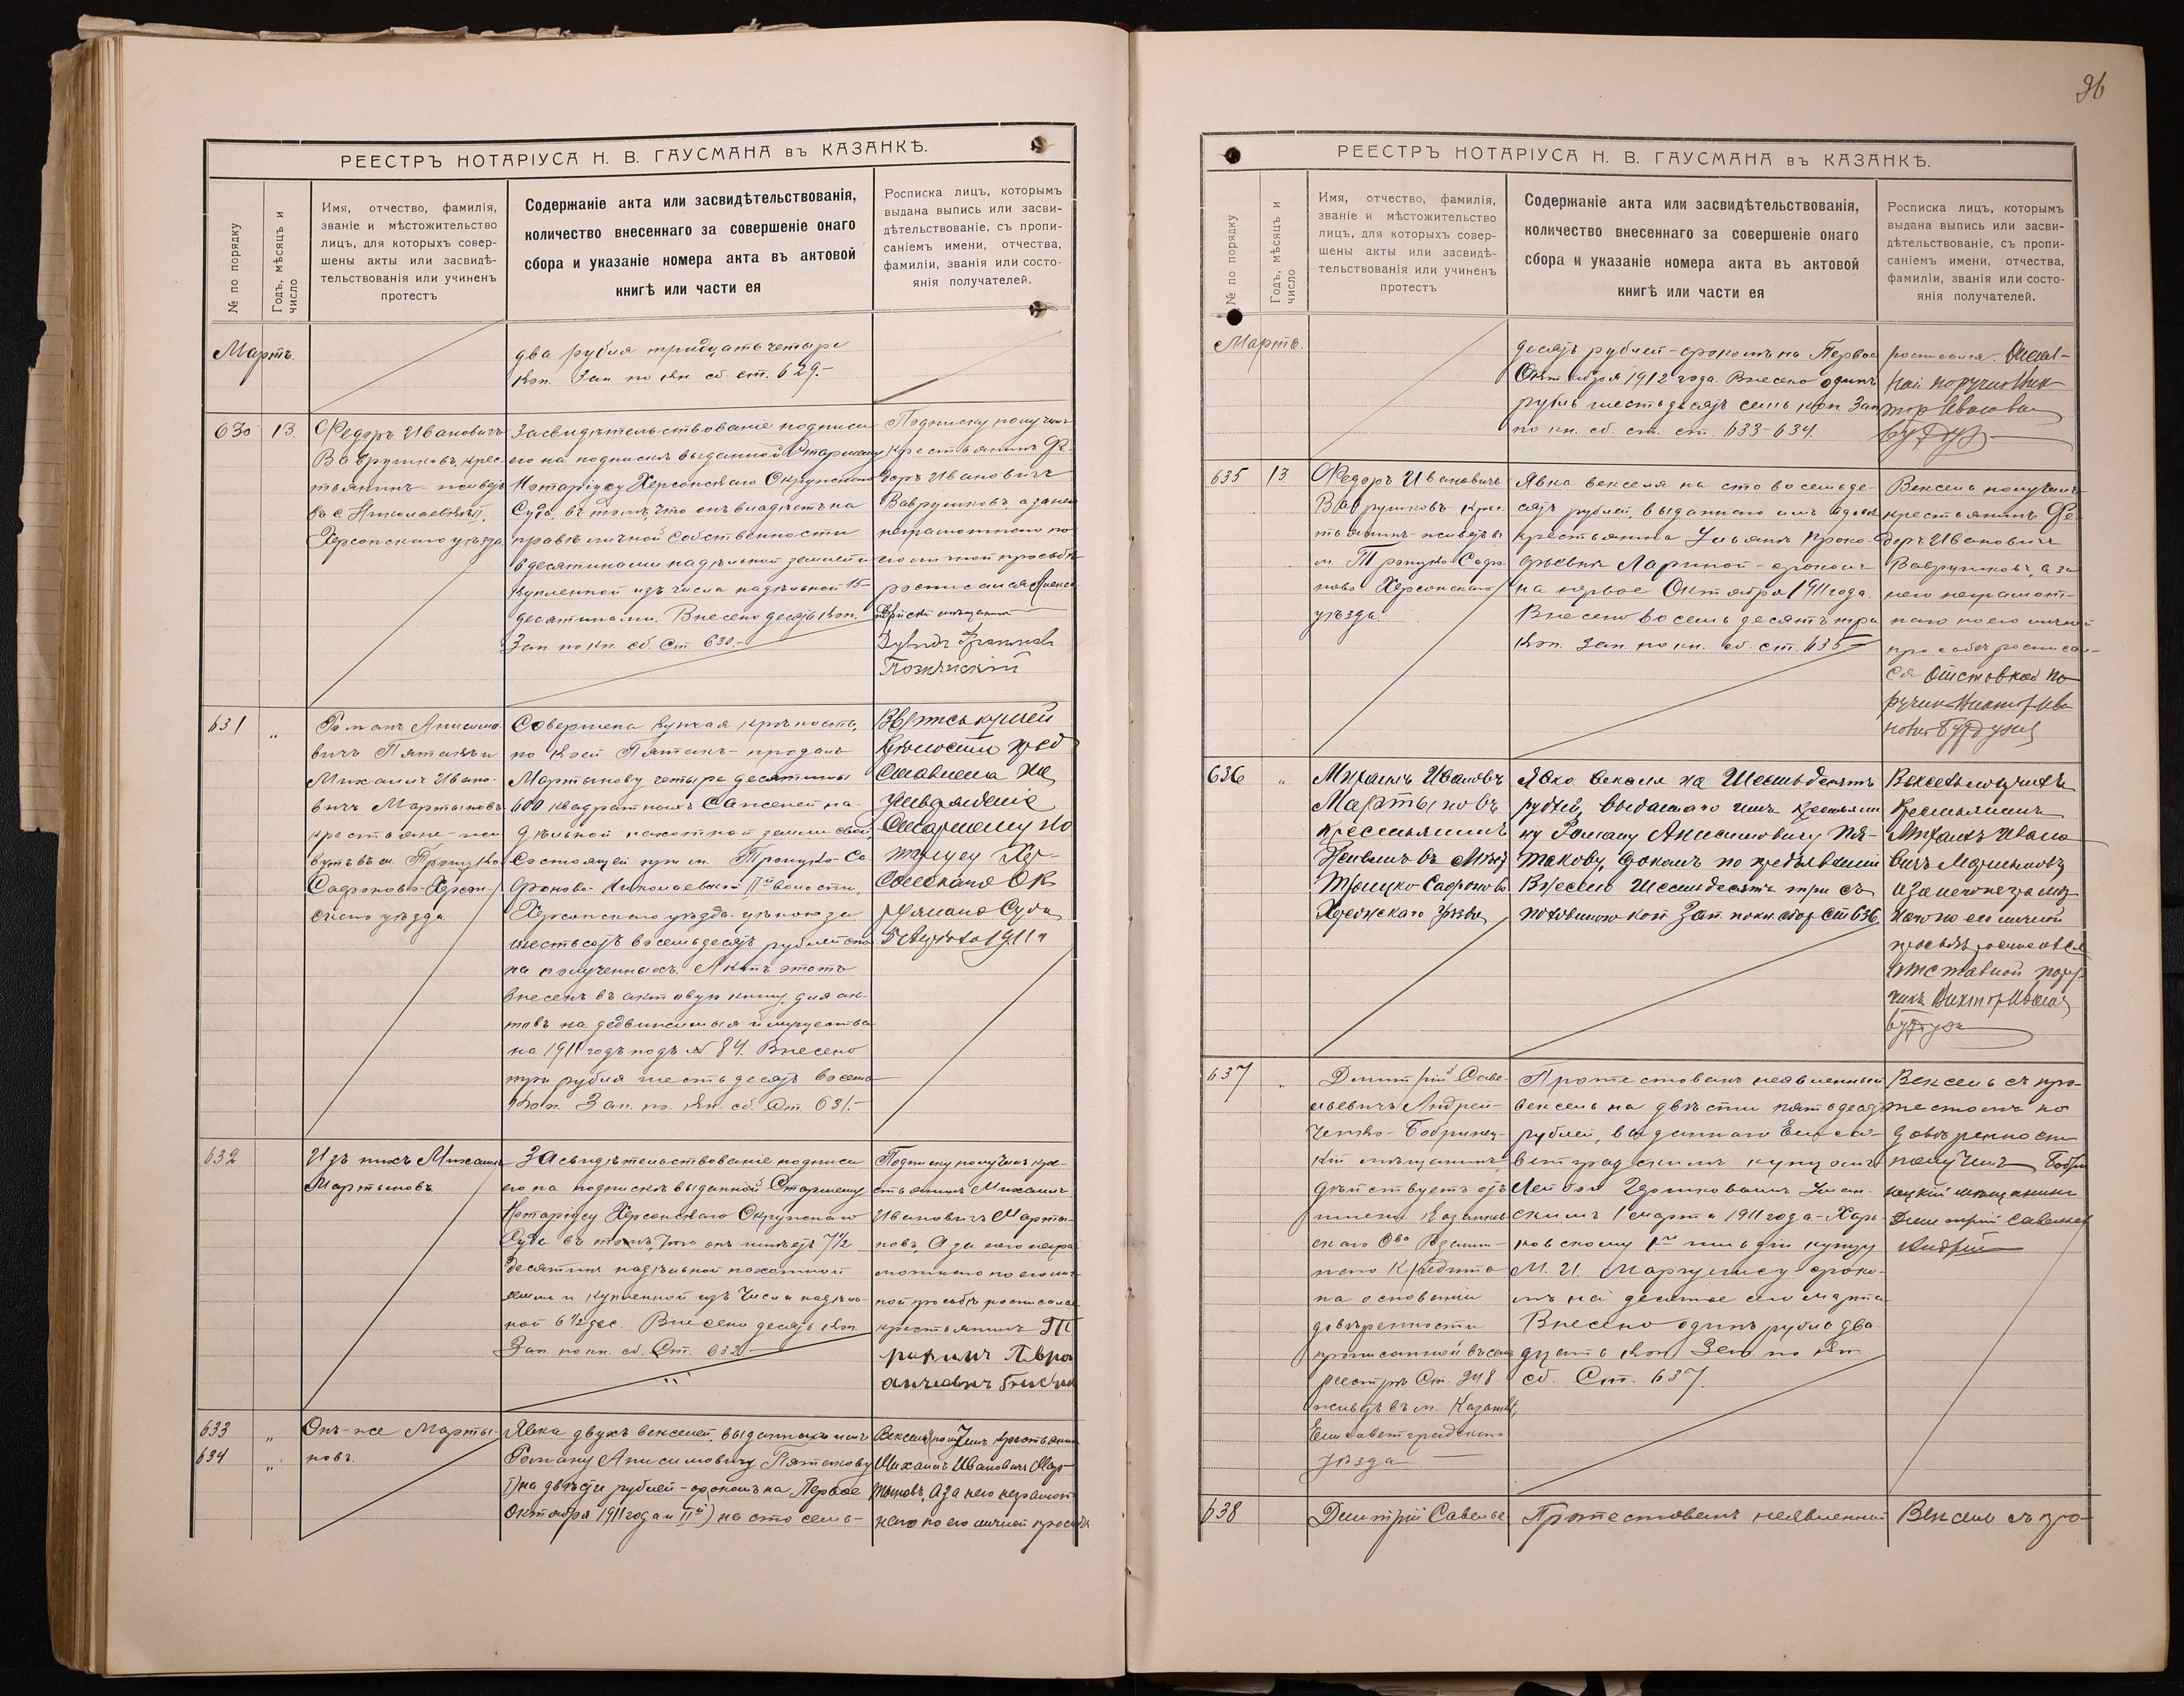 96
РЕЕСТРЪ НОТАРІУСА Н. В. ГАУСМАНА въ КАЗАНКѢ.
№ по порядку
Годъ, мѣсяцъ и
число
Имя, отчество, фамилія,
званіе и мѣстожительство
лицъ, для которыхъ совер-
шены акты или засвидѣ-
тельствованія или учиненъ
протестъ
Содержаніе акта или засвидѣтельствованія,
количество внесеннаго за совершеніе онаго
сбора и указаніе номера акта въ актовой
книгѣ или части ея
Росписка лицъ, которымъ
выдана выпись или засви-
дѣтельствованіе, съ пропи-
саніемъ имени, отчества,
фамиліи, званія или состо-
янія получателей.
Мартъ.
два рубля тридцать четыре
коп. Зап. по кн. сб. ст. 629.-
630
13.
Федоръ Ивановичъ
Ваврушковъ, крес-
тьянинъ - живетъ
въ с. Николаевкѣ II,
Херсонскаго уѣзда.
Засвидѣтельствованіе подписи
его на подпискѣ выданной Старшему
Нотаріусу Херсонскаго Окружнаго
Суда, въ томъ, что онъ владѣетъ на
правѣ личной собственности
6 десятинами надѣльной земли и
купленной изъ числа надѣльной 15
десятинами. Внесено десять коп.
Зап. по кн. сб. Ст. 630.-
Подписку получилъ
крестьянинъ Фе-
доръ Ивановичъ
Ваврушковъ, а за него
неграмотнаго по
его личной просьбѣ
росписался
мѣщанинъ
631
"
Романъ Анисимо-
вичъ Пятаковъ и
Михаилъ Ивано-
вичъ Мартыновъ
крестьяне - жи
вутъ въ м. Троицко
Сафоново - Херсон-
скаго уѣзда
Совершена купчая крѣпость,
по коей Пятаковъ - продалъ
Мартынову четыре десятины
600 квадратныхъ саженей на-
дѣльной пахотной земли своей,
состоящей при м. Троицко-Са
фоново - Николаевской II й волости,
Херсонскаго уѣзда - цѣною за
шестьсотъ восемьдесятъ рублей спол
на полученныхъ. Актъ этотъ
внесенъ въ актовую книгу для ак-
товъ на недвижимыя имущества
на 1911 годъ подъ № 84. Внесено
три рубля шестьдесятъ восемь
коп. Зап. по кн. сб. Ст. 631.-
Выпись купчей
крѣпости пред
ставлена на
утвержденіе
Старшему Но
таріусу Хер-
сонскаго Ок
ружнаго Суда
5 1911 г
632
Изъ нихъ Михаилъ
Мартыновъ
Засвидѣтельствованіе подписи
его на подпискѣ выданной Старшему
Нотаріусу Херсонскаго Окружнаго
Суда въ томъ, что онъ имѣетъ 7½
десятинъ надѣльной пахотной
земли и купленной изъ числа надѣль-
ной 6½ дес. Внесено десять коп.
Зап. по кн. сб. Ст. 632.
Подписку получилъ кре-
стьянинъ Михаилъ
Ивановичъ Марты-
новъ, А за него негра
мотнаго по его лич-
ной просьбѣ росписался
крестьянинъ
633
"
634
"
Онъ-же Марты-
новъ.
Явка двухъ векселей, выданныхъ имъ
Роману Анисимовичу Пятакову
I) на двѣсти рублей - срокомъ на Первое
Октября 1911 года и II й) на сто семь-
Векселя получилъ крестьянинъ
Михаилъ Ивановичъ Мар-
тыновъ, А за него неграмот-
наго по его личной просьбѣ
РЕЕСТРЪ НОТАРІУСА Н. В. ГАУСМАНА въ КАЗАНКѢ.
№ по порядку
Годъ, мѣсяцъ и
число
Имя, отчество, фамилія,
званіе и мѣстожительство
лицъ, для которыхъ совер-
шены акты или засвидѣ-
тельствованія или учиненъ
протестъ
Содержаніе акта или засвидѣтельствованія,
количество внесеннаго за совершеніе онаго
сбора и указаніе номера акта въ актовой
книгѣ или части ея
Росписка лицъ, которымъ
выдана выпись или засви-
дѣтельствованіе, съ пропи-
саніемъ имени, отчества,
фамиліи, званія или состо-
янія получателей.
Мартъ.
десятъ рублей - срокомъ на Первое
Октября 1912 года. Внесено одинъ
рубль шестьдесятъ семь коп. Зап
по кн. сб. ст. ст. 633-634.
росписался. Отстав-
ной поручикъ Вик-
торъ Ивановичъ
635
13
Федоръ Ивановичъ
Ваврушковъ крес-
тьянинъ - живетъ въ
м. Троицко-Сафо-
ново Херсонскаго
уѣзда.
Явка векселя на сто восемьде-
сятъ рублей, выданнаго имъ вдовѣ
крестьянина Ульянѣ Проко-
фьевнѣ Лариной - срокомъ
на первое Октября 1911 года.
Внесено восемьдесятъ три
коп. Зап. по кн. сб. ст. 635
Вексель получилъ
крестьянинъ Фе-
доръ Ивановичъ
Ваврушковъ, а за
него неграмот-
наго по его личной
просьбѣ росписал-
ся Отставной по
ручикъ Викторъ Ива
новичъ
636
"
Михаилъ Ивановъ
Мартыновъ
крестьянинъ
живетъ въ мѣст
Троицко-Сафоново
Херсонскаго уѣзда
Явка векселя на шестьдесятъ
рублей, выданнаго имъ крестьяни
ну Роману Анисимовичу Пя-
такову, срокомъ по предъявленіи
Внесено шестьдесятъ три съ
половиною коп Зап. по кн. сбор. Ст 636.
Вексель получилъ
крестьянинъ
Михаилъ Ивано
вичъ Мартыновъ
а за него неграмот
наго по его личной
просьбѣ росписался
отставной пору-
чикъ Викторъ Иванов
637
"
Димитрій Саве-
льевичъ Андрей-
ченко - Бобринец-
кій мѣщанинъ,
дѣйствуетъ отъ
имени Казанков-
скаго О-ва Взаим-
наго Кредита
на основаніи
довѣренности
прописанной въ семъ
реестрѣ Ст. 248.
живетъ въ м. Казанкѣ,
Елисаветградскаго
уѣзда
Протестованъ неявленный
вексель на двѣсти пятьдесятъ
рублей, выданнаго Елиса-
ветградскимъ купцомъ
Лейбой Уман-
скимъ 1 марта 1911 года - Харь-
ковскому 1й гильдіи купцу
М. И. Маргулису - сроко-
мъ на десятое сего марта
Внесено одинъ рубль два-
дцать коп. Зап. по кн.
сб. Ст. 637.
Вексель съ про-
тестомъ по
довѣренности
получилъ Бобри
нецкій мѣщанинъ
Димитрій Савельев
Андрей
638
Димитрій Савелье
Протестованъ неявленный
Вексель съ про-